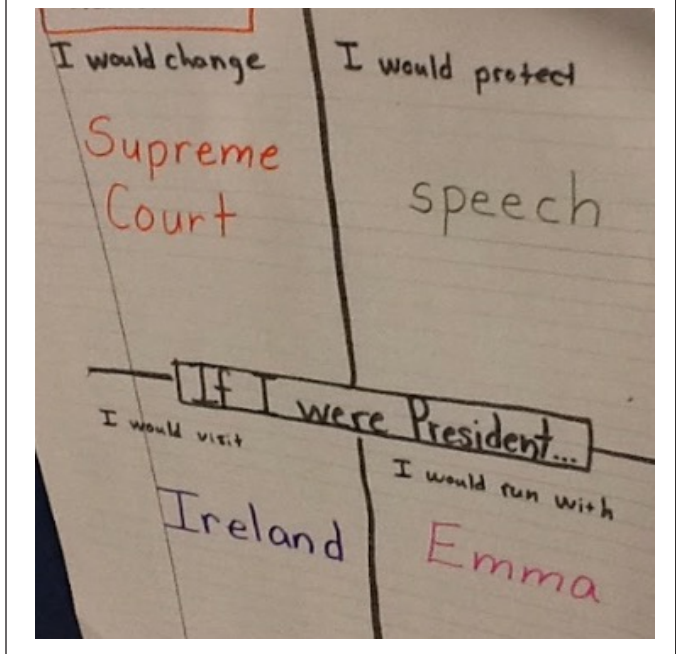 I would change
Supreme
Court
I would protect
speech
If I were President...
I would visit
Ireland
I would run with
Emma